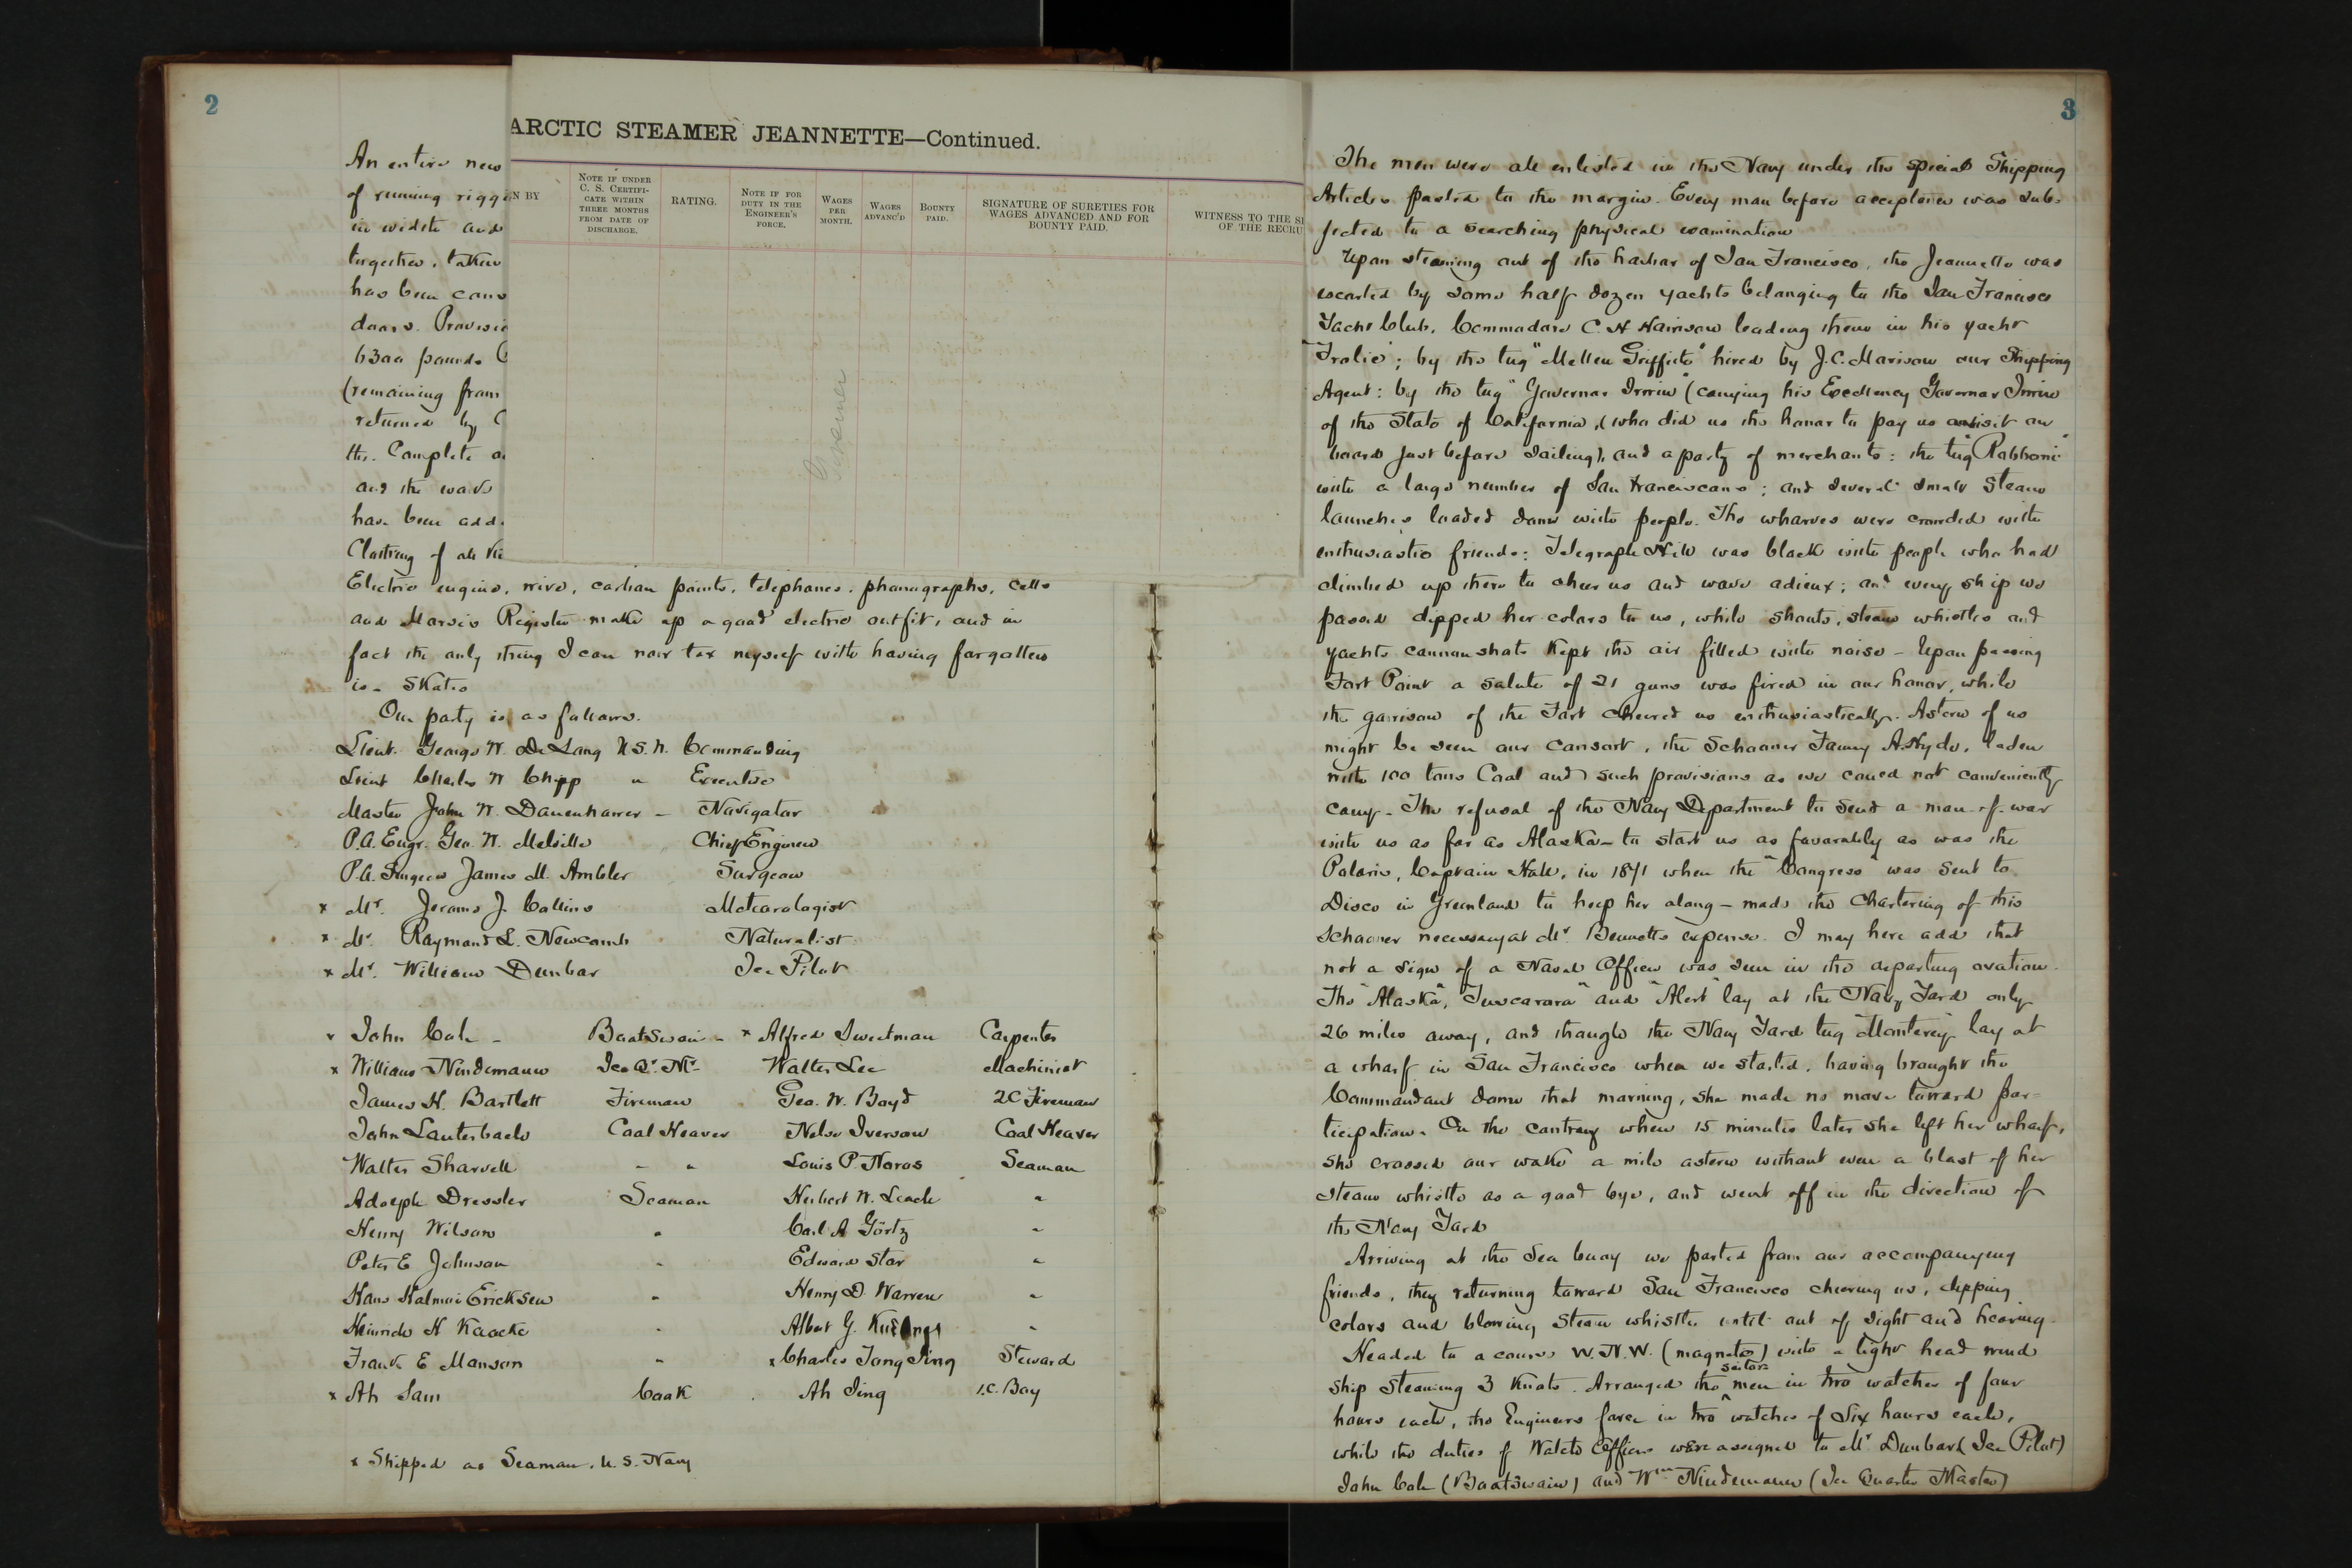 2
An entire new
of running riggi
in width and
together, taken
has been cons
doors. Provisio
6300 pounds
(remaining from
returned by
the. Complete
and the wards
have been add
Clothing of all
ARCTIC STEAMER JEANNETTE—Continued.
N BY
NOTE IF UNDER C. S. CERTIFICATE WITHIN THREE MONTHS FROM DATE OF DISCHARGE.
RATING.
NOTE IF FOR DUTY IN THE ENGINEER'S FORCE.
WAGES PER MONTH.
WAGES ADVANC'D
BOUNTY PAID.
SIGNATURE OF SURETIES FOR WAGES ADVANCED AND FOR BOUNTY PAID.
WITNESS TO THE SI
OF THE RECRU
Electric engine, wire, carbon points, telephones, phonographs, cells
and Morse's Register make up a good electric outfit, and in
fact the only thing I can now tax myself with having forgotten
is - Skates
Our party is as follows.
Lieut. George W. De Long U.S.N. Commanding
Lieut Charles W Chipp " Executive
Master John W. Danenhower - Navigator
P.A. Engr. Geo. W. Melville Chief Engineer
P.A. Surgeon James M. Ambler Surgeon
x Mr. Jerome J. Collins Meteorologist
x Mr. Raymond L. Newcomb Naturalist
x Mr. William Dunbar Ice Pilot
x John Cole - Boatswain - x Alfred Sweetman Carpenter
x William Nindemann Ice Qr. Mr. Walter Lee Machinist
James H. Bartlett Fireman Geo. W. Boyd 2C Fireman
John Lauterbach Coal Heaver Nelse Iverson Coal Heaver
Walter Sharvell - " Louis P. Noros Seaman
Adolph Dressler Seaman Herbert W. Leach "
Henry Wilson " Carl A Görtz "
Peter E Johnson " Edward Star "
Hans Halmoi Ericksen " Henry D. Warren "
Heinrich H Kaacke " Albert G. "
Frank E Manson " x Charles Tong Sing Steward
x Ah Sam Cook . Ah Sing 1.C. Boy
x Shipped as Seaman. U.S. Navy
3
The men were all enlisted in the Navy under the special Shipping
Articles pasted to the margin. Every man before acceptance was sub-
jected to a searching physical examination
Upon steaming out of the harbor of San Francisco, the Jeannette was
escorted by some half dozen yachts belonging to the San Francisco
Yacht Club, Commodore C. H Harrison leading them in his yacht
"Frolic"; by the tug "Mellen Griffith" hired by J.C. Morrison our Shipping
Agent: by the tug "Governor Irwin" (carrying his Excellency Governor Irwin
of the State of California, (who did us the honor to pay us a visit on
board just before sailing), and a party of merchants: the tug "Rabboni"
with a large number of San Franciscans; and several small steam
launches loaded down with people. The wharves were crowded with
enthusiastic friends: Telegraph Hill was black with people who had
climbed up there to cheer us and wave adieux; and every ship we
passed dipped her colors to us, while shouts, steam whistles and
yachts cannon shots kept the air filled with noise - Upon passing
Fort Point a salute of 21 guns was fired in our honor, while
the garrison of the Fort cheered us enthusiastically. Astern of us
might be seen our Consort, the Schooner Fanny A. Hyde, laden
with 100 tons Coal and such provisions as we could not conveniently
carry. The refusal of the Navy Department to send a man-of-war
with us as far as Alaska - to start us as favorably as was the
Polaris, Captain Hall, in 1871 when the "Congress" was sent to
Disco in Greenland to help her along - made the Chartering of this
Schooner necessary at Mr. Bennetts expense. I may here add that
not a sign of a Naval Officer was seen in the departing ovation.
The "Alaska", "Tuscarora" and "Alert" lay at the Navy Yard only
26 miles away, and though the Navy Yard tug "Monterey" lay at
a wharf in San Francisco when we started, having brought the
Commandant down that morning, she made no move toward par-
ticipation. On the contrary when 15 minutes later she left her wharf,
she crossed our wake a mile astern without even a blast of her
steam whistle as a good bye, and went off in the direction of
the Navy Yard
Arriving at the Sea buoy we parted from our accompanying
friends, they returning toward San Francisco cheering us, dipping
colors and blowing steam whistles until out of sight and hearing.
Headed to a course W.N.W. (magnetic) with a light head wind
ship steaming 3 Knots. Arranged the ^sailor men in two watches of four
hours each, the Engineers force in two watches of six hours each,
while the duties of Watch Officers were assigned to Mr Dunbar (Ice Pilot)
John Cole (Boatswain) and Wm Nindemann (Ice Quarter Master)